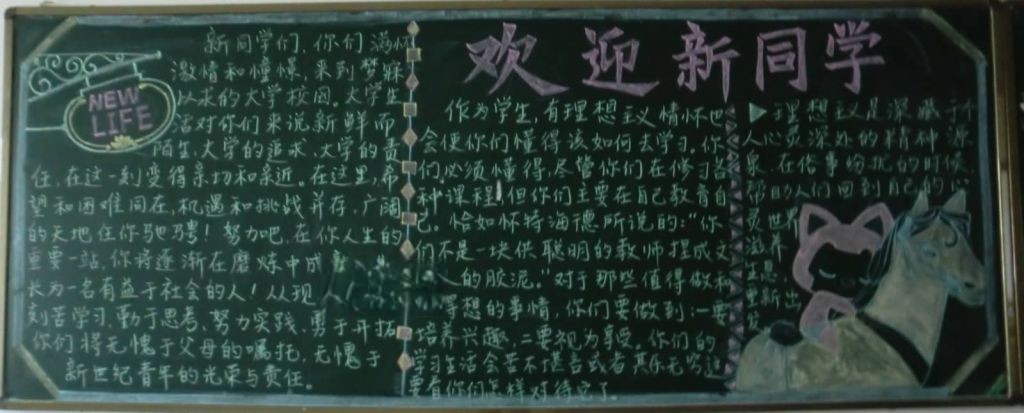 欢迎新同学
NEW
LIFE
新同学们,你们满怀
激情和憧憬,来到梦寐
以求的大学校园。大学生
活对你们来说新鲜而
陌生,大学的追求、大学的责
任,在这一刻变得亲切和亲近。在这里,希
望和困难同在,机遇和挑战并存,广阔
的天地任你驰骋!努力吧,在你人生的
重要一站,你将逐渐在磨炼中成
长为一名有益于社会的人!从现
刻苦学习、勤于思考、努力实践、勇于开拓
你们将无愧于父母的嘱托,无愧于
新世纪青年的光荣与责任。
作为学生,有理想主义情怀也
会使你们懂得该如何去学习。你
们必须懂得,尽管你们在修习各
种课程,但你们主要在自己教育自
己。恰如怀特海德所说的:“你
们不是一块供聪明的教师捏成文
人的胶泥。”对于那些值得做和
得想的事情,你们要做到:一要
培养兴趣,二要视为享受。你们的
学习生活会苦不堪言或者其乐无穷这
要看你们怎样对待它了。
理想主义是深藏于个
人心灵深处的精神源
泉,在俗事纷扰的时候,
帮助人们回到自己的心
灵世界
滋养
生息,
重新出
发